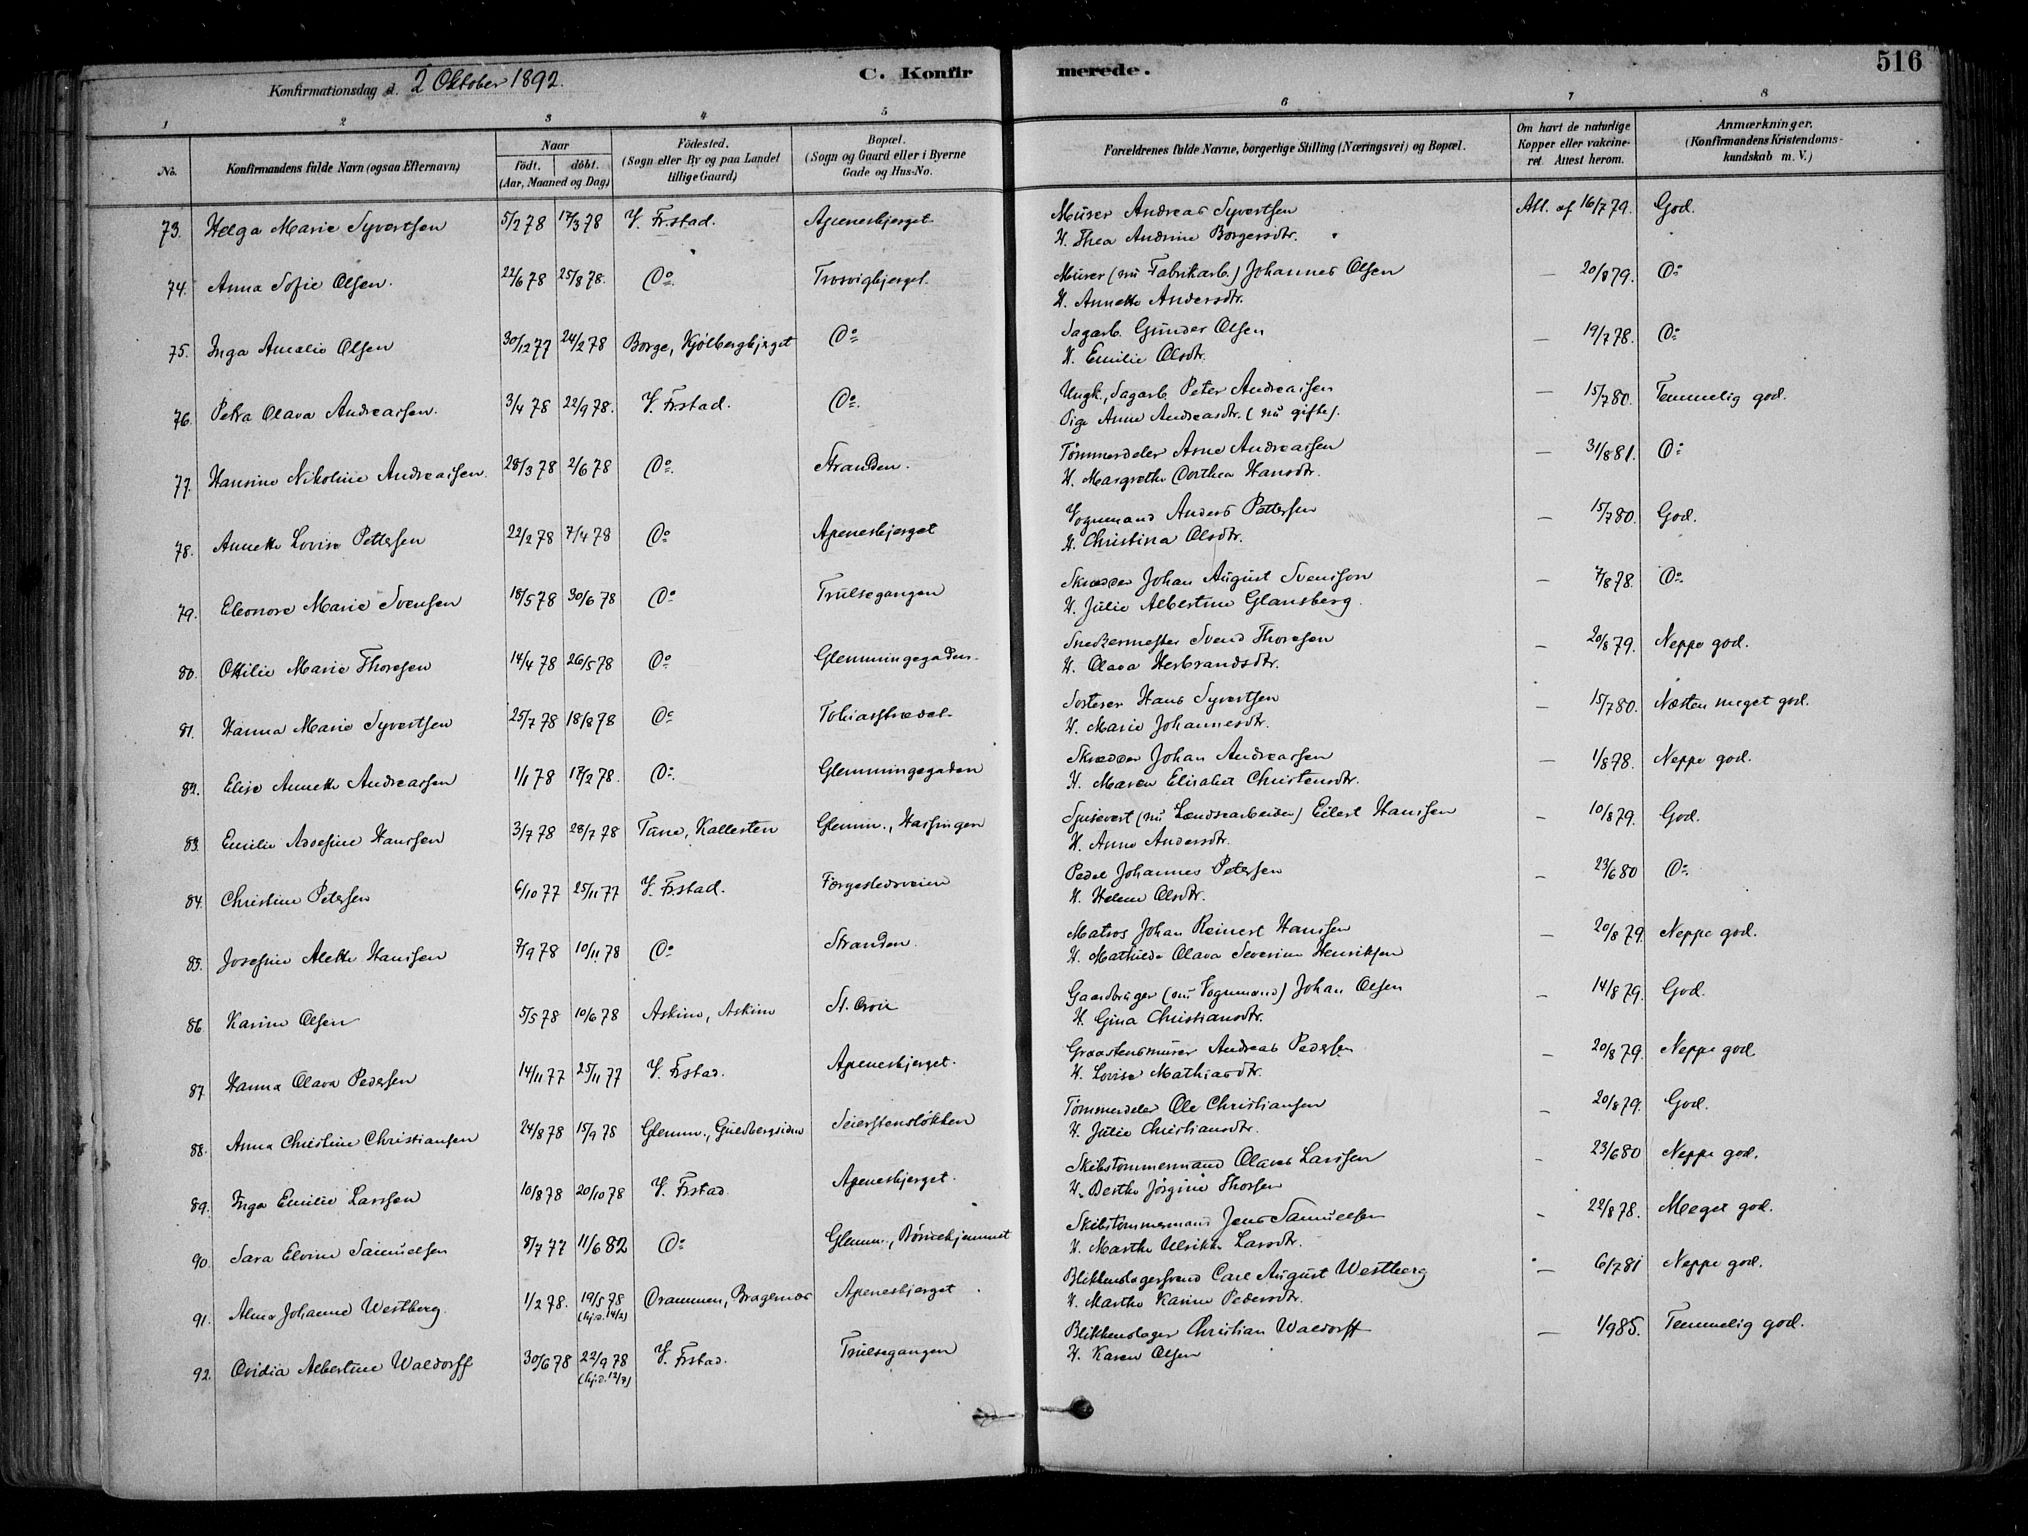 Konfirmationsdag d. 2 Oktober 1892.
C. Konfirmerede.
516
1 2 3 4 5 6 7 8
No. Konfirmandens fulde Navn (ogsaa Efternavn) Naar födt. döbt. (Aar, Maaned og Dag) Födested. (Sogn eller By og paa Landet tillige Gaard) Bopæl. (Sogn og Gaard eller i Byerne Gade og Hus-No. Forældrenes fulde Navne, borgerlige Stilling (Næringsvei) og Bopæl. Om havt de naturlige Kopper eller vakcineret Attest herom. Anmærkninger. (Konfirmandens Kristendomskundskab m. V.)
73. Helga Marie Syvertsen 5/2 78 17/3 78 V. Frstad. Apenesbjerget Murer Andreas Syvertsen Att. af 16/7 79. God.
H. Thea Andrine Borgersdtr.
74. Anna Sofie Olsen. 22/6 78 25/8 78. Do Trosvigbjerget. Murer (nu Fabrikarb.) Johannes Olsen — 20/8 79. Do
H. Annette Andersdtr.
75. Inga Amalie Olsen 30/12 77 24/2 78 Borge, Kjölbergbjerget Do Sagarb. Gunder Olsen — 19/7 78. Do
H. Emilie Olsdtr.
76. Petra Olava Andreassen. 3/4 78 22/9 78. V. Frstad. Do Ungk., Sagarb. Peter Andreassen — 15/7 80. Temmelig god.
Pige Anne Andreasdtr. (nu gift).
77. Hansine Nikoline Andreassen. 28/3 78 2/6 78 Do Stranden. Tömmerdeler Arne Andreassen — 31/8 81. Do
H. Margrethe Dorthea Hansdtr.
78. Annette Lovise Pettersen 22/2 78 7/4 78 Do Apenesbjerget Vognmand Anders Pettersen — 15/7 80. God.
H. Christina Olsdtr.
79. Eleonore Marie Svensen 18/5 78 30/6 78 Do Trulsegangen Skrædder Johan August Svensson — 7/8 78. Do
H. Julie Albertine Glansberg.
80. Ottilie Marie Thoresen 14/4 78 26/5 78 Do Glemmingegaden. Snedkermester Svend Thoresen — 20/8 79. Neppe god.
H. Olava Herbrandsdtr.
81. Hanna Marie Syvertsen 25/7 78 18/8 78 Do Tobiasstrædet Sorterer Hans Syvertsen — 15/7 80. Næsten meget god.
H. Marie Johannesdtr.
82. Elise Annette Andreassen 1/1 78 17/2 78. Do Glemmingegaden Skrædder Johan Andreassen — 1/8 78. Neppe god.
H. Maren Elisabet Christensdtr.
83. Emilie Josefine Hanssen 3/7 78 28/7 78 Tune, Kallesten Glemm., Hassingen Spisevert (nu Lændsearbeider) Eilert Hanssen — 10/8 79. God.
H. Anne Andersdtr.
84. Christine Petersen 6/10 77 25/11 77 V. Frstad. Færgestedsveien Pedel Johannes Petersen — 23/6 80 Do
H. Helene Olsdtr.
85. Josefine Alette Hanssen 7/9 78 10/11 78 Do Stranden. Matros Johan Reinert Hanssen — 20/8 79. Neppe god.
H. Mathilde Olava Severine Henriksen
86 Karine Olsen 5/5 78 10/6 78 Askim, Askim St. Croix Gaardbruger (nu Vognmand) Johan Olsen — 14/8 79. God.
H. Gina Christiansdtr.
87. Hanna Olava Pedersen 14/11 77 25/11 77 V. Frstad. Apenesbjerget. Graastensmurer Andreas Pedersen — 20/8 79. Neppe god
H. Lovise Mathiasdtr.
88. Anna Christine Christiansen 24/8 78 15/9 78 Glemm., Guldbergsiden Seierstenslökken Tömmerdeler Ole Christiansen — 20/8 79. God.
H. Julie Christiansdtr.
89. Inga Emilie Larssen 10/8 78 20/10 78 V. Frstad. Apenesbjerget. Skibstömmermand Olaves Larssen — 23/6 80 Neppe god.
H. Berthe Jörgine Thorsen
90. Sara Elvine Samuelsen 8/7 77 11/6 82 Do Glemm., Börnehjemmet Skibstömmermand Jens Samuelsen — 22/8 78. Meget god.
H. Marthe Ulrikke Larsdtr.
91. Alma Johanne Westberg. 1/2 78. 19/5 78 (hj.d. 14/2) Drammen, Bragernæs Apenesbjerget Blikkenslagersvend Carl August Westberg — 6/7 81 Neppe god.
H. Marthe Karine Pedersdtr.
92. Ovidia Albertine Waldorff 30/6 78 22/9 78 (hj.d. 12/7) V. Frstad. Trulsegangen Blikkenslager Christian Waldorff — 1/9 85. Temmelig god.
H. Karen Olsen